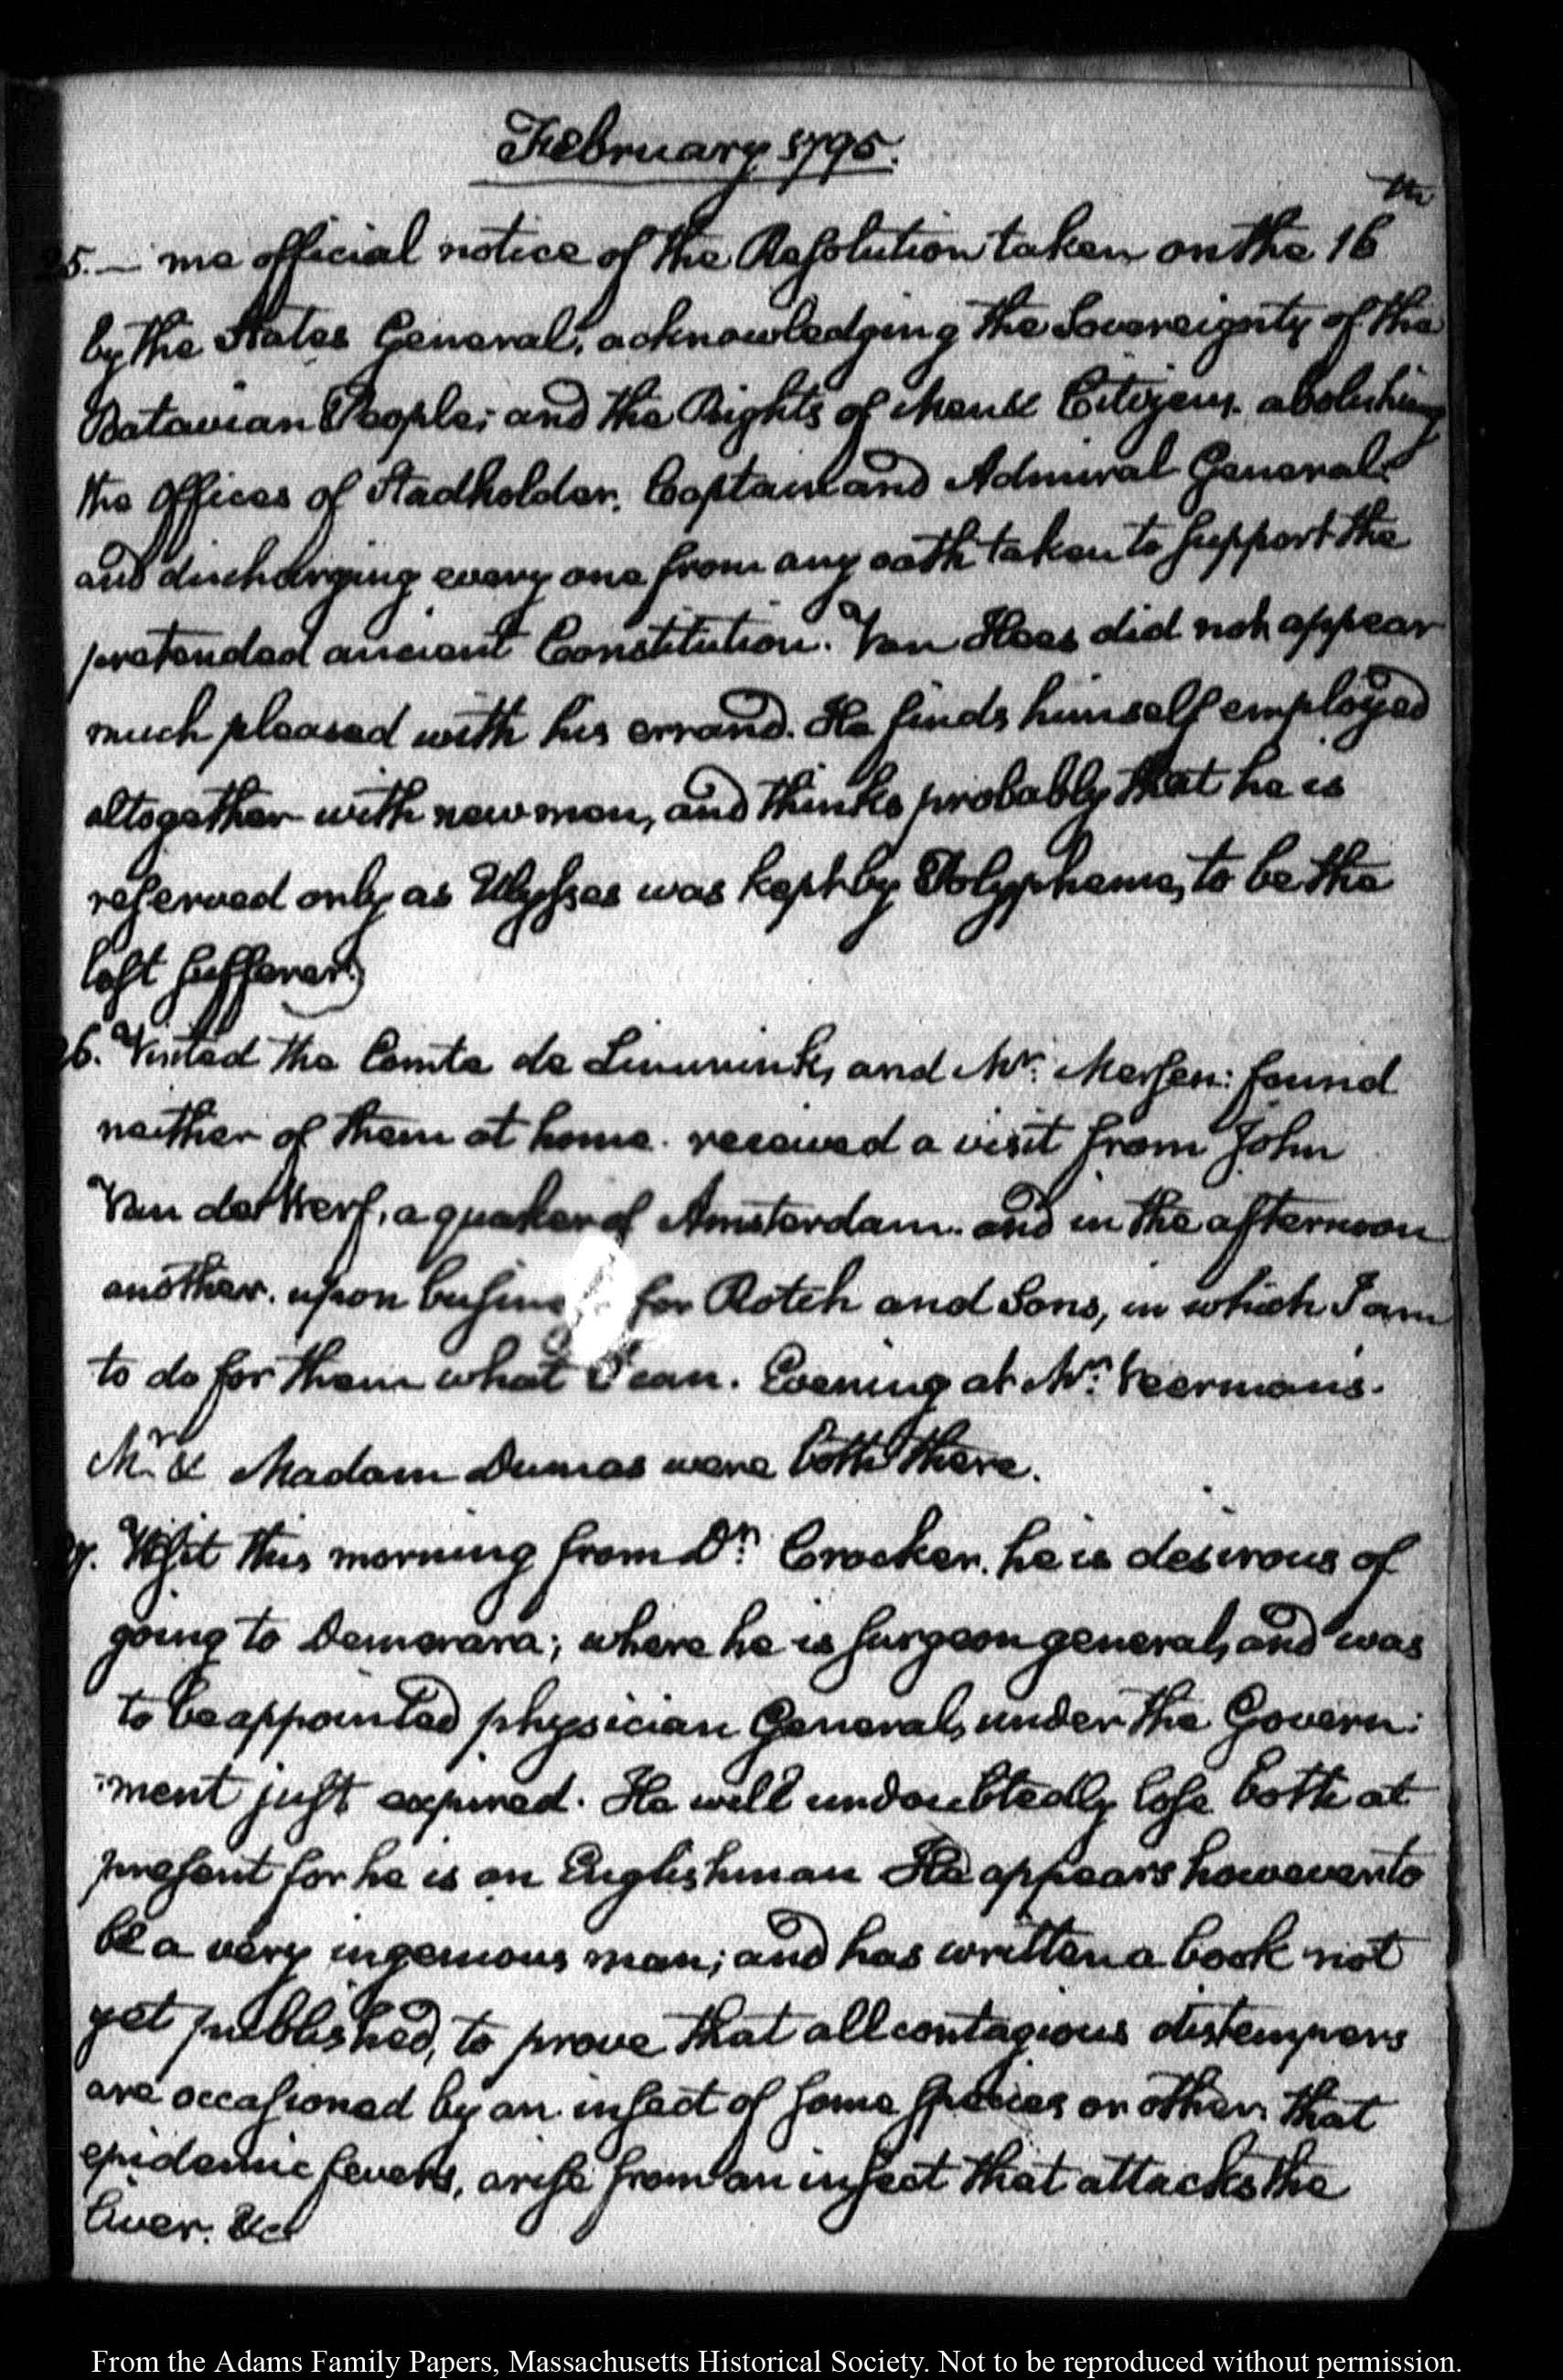 February 1795.
25. — me official notice of the Resolution taken on the 16th
by the States General, acknowledging the Sovereignty of the
Batavian People; and the Rights of Man & Citizens. abolishing
the Offices of Stadholder, Captain and Admiral General.
and discharging every one from any oath taken to support the
pretended ancient Constitution. Van Hees did not appear
much pleased with his errand. He finds himself employed
altogether with new men, and thinks probably that he is
reserved only as Ulysses was kept by Polypheme, to be the
last sufferer.
26. Visited the Comte de and Mr: found
neither of them at home. received a visit from John
Van der Werf, a quaker of Amsterdam. and in the afternoon
another. upon business for Rotch and Sons, in which I am
to do for them what I can. Evening at Mr: Veerman's.
Mr. & Madam Dumas were both there.
27. Visit this morning from Dr: Crocker. he is desirous of
going to Demerara; where he is surgeon general, and was
to be appointed physician General, under the Govern:
:ment just expired. He will undoubtedly lose both at
present for he is an Englishman He appears however to
be a very ingenious man; and has written a book not
yet published, to prove that all contagious distempers
are occasioned by an insect of some species or other, that
epidemic fevers, arise from an insect that attacks the
liver. &c
From the Adams Family Papers, Massachusetts Historical Society. Not to be reproduced without permission.